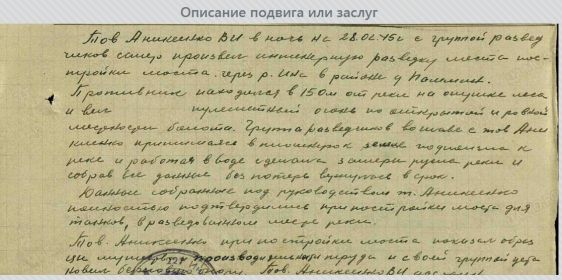 Описание подвига или заслуг
Тов Аникеенко ВИ в ночь на 28.02.45г с группой развед
чиков сапер произвел инженерную разведку места пос-
тройки моста. через р. Ина в районе д
Противник находился в 150м от реки на опушке леса
и вел пулеметный огонь по открытой и ровной
местности болота. Группа разведчиков во главе с тов Ани
кеенко прижимаясь вплотную к земле подползла к
реке и работая в воде сделала замеры русла реки и
собрав все данные без потерь вернулась в срок.
Данные собранные под руководством т. Аникеенко
полностью подтвердились при постройки моста для
танков, в разведованном месте реки.
Тов. Аникеенко при постройки моста показал образ
цы производил и своей группой уста
Тов. Аникеенко ВИ